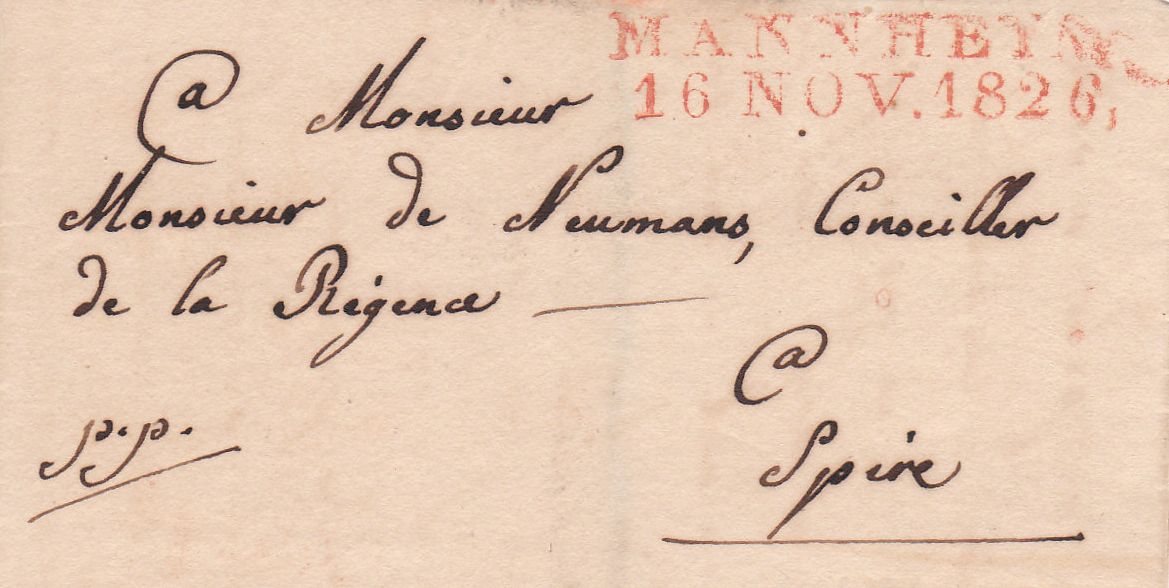 MANNHEIM
16 NOV. 1826,
a Monsieur
Monsieur de Neumans, Conseiller
de la Régence
a
Spire
p.p.